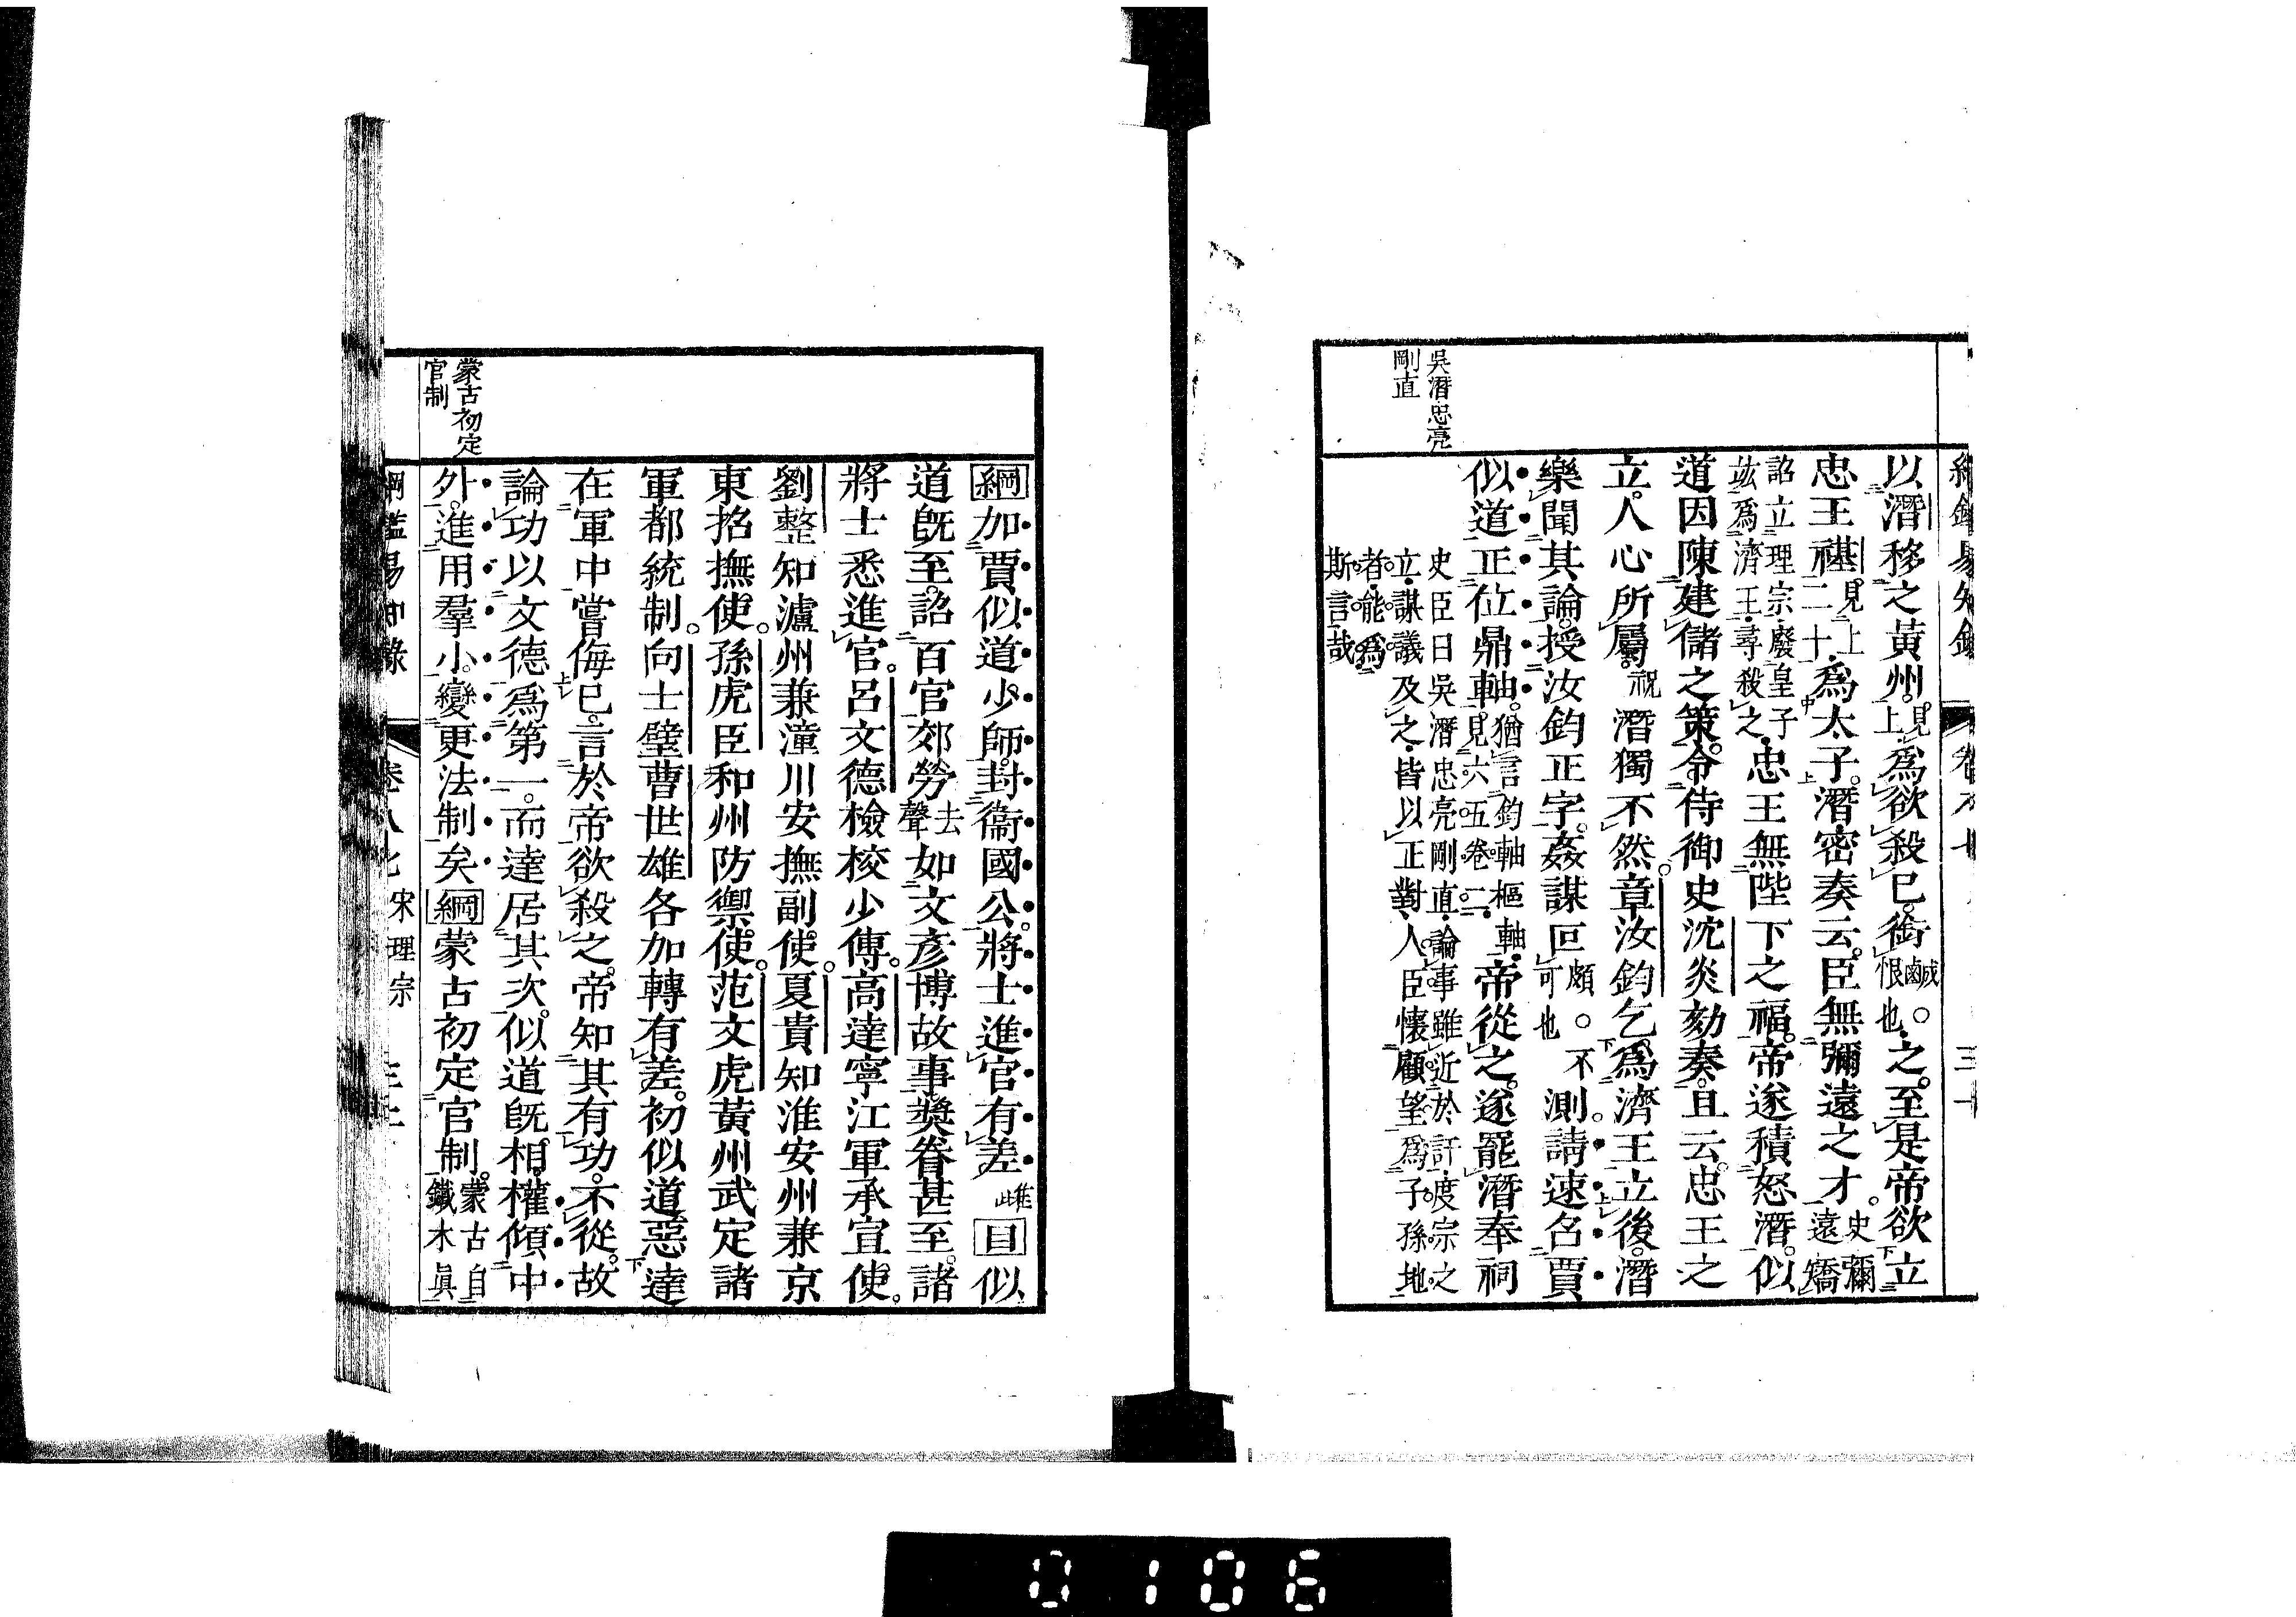 吳潛忠亮
剛直
以潛移之黃州。見上爲欲殺已。銜鹹恨也。之。至是帝欲立
忠王禥。見上二十爲太子。潛密奏云。臣無彌遠之才。史彌遠矯
詔立理宗廢皇子竑爲濟王尋殺之忠王無陛下之福。帝遂積怒潛。似
道因陳建儲之策。令侍御史沈炎劾奏。且云。忠王之
立。人心所屬。祝潛獨不然。章汝鈞乞爲濟王立後。潛
樂聞其論。授汝鈞正字。姦謀叵頗可也。不測。請速召賈
似道正位鼎軸。猶言鈞軸樞軸見六五卷二帝從之。遂罷潛奉祠
史臣曰吳潛忠亮剛直論事雖近於訐度宗之
立謀議及之皆以正對人臣懷顧望爲子孫地
者能爲
斯言哉
綱加賈似道少師。封衞國公。將士進官有差雌目似
道旣至。詔百官郊勞去聲如文彥博故事。奬眷甚至。諸
將士悉進官。呂文德檢校少傅。高達寧江軍承宣使。
劉整知瀘州兼潼川安撫副使。夏貴知淮安州兼京
東招撫使。孫虎臣和州防禦使。范文虎黃州武定諸
軍都統制。向士璧曹世雄各加轉有差。初似道惡達
在軍中嘗侮已。言於帝欲殺之。帝知其有功。不從。故
論功以文德爲第一。而達居其次。似道旣相。權傾中
外。進用羣小。變更法制矣綱蒙古初定官制。蒙古自鐵木眞
蒙古初定
官制
綱鑑易知錄 卷八七 宋理宗
0106